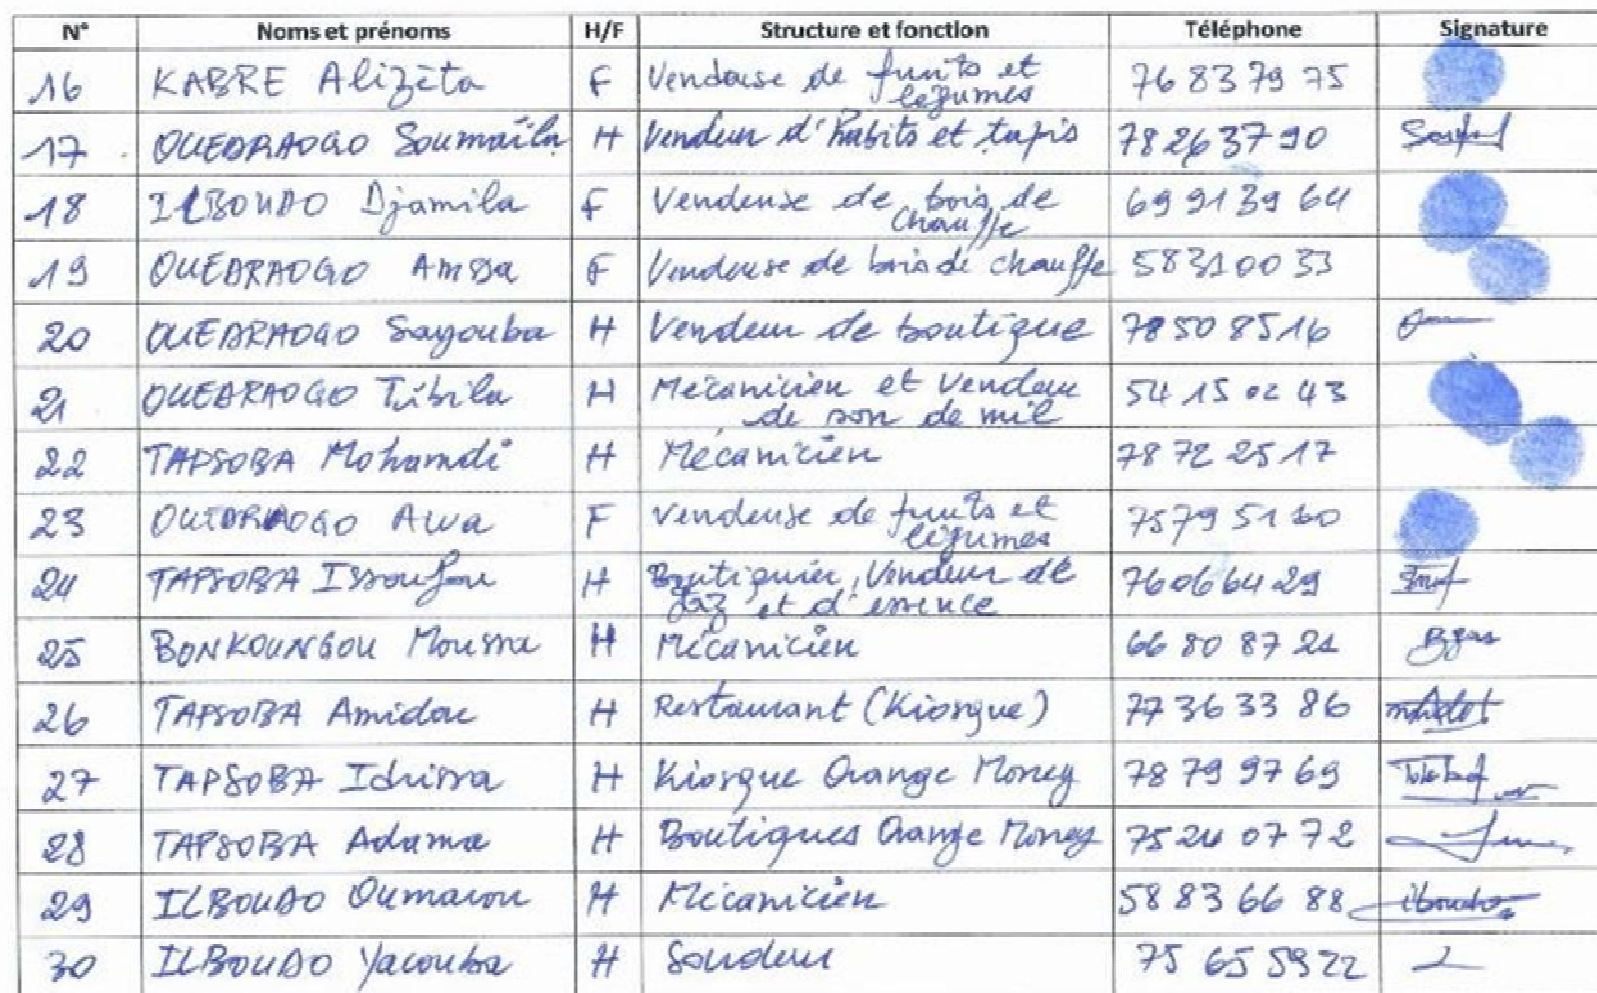 N° Noms et prénoms H/F Structure et fonction Téléphone Signature
16 KABRE Alizèta F Vendeuse de fruits et légumes 76 83 79 75
17 OUEDRAOGO Soumaïla H Vendeur d'habits et tapis 78 26 37 90
18 ILBOUDO Djamila F Vendeuse de bois de chauffe 69 91 39 64
19 OUEDRAOGO F Vendeuse de bois de chauffe 58 31 00 33
20 OUEDRAOGO Sayouba H Vendeur de boutique 78 50 85 16
21 OUEDRAOGO Tibila H Mécanicien et Vendeur de son de mil 54 15 02 43
22 TAPSOBA Mohamdi H Mécanicien 78 72 25 17
23 OUEDRAOGO Awa F Vendeuse de fruits et légumes 75 79 51
24 TAPSOBA Issoufou H Boutiquier, Vendeur de gaz et d'essence 76 06 64 29
25 BONKOUNGOU Moussa H Mécanicien 66 80 87 21
26 TAPSOBA Amidou H Restaurant (Kiosque) 77 36 33 86
27 TAPSOBA Idrissa H Kiosque Orange Money 78 79 97 69
28 TAPSOBA Adama H Boutiques Orange Money 75 24 07 72
29 ILBOUDO Oumarou H Mécanicien 58 83 66 88
30 ILBOUDO Yacouba H Soudeur 75 65 59 22